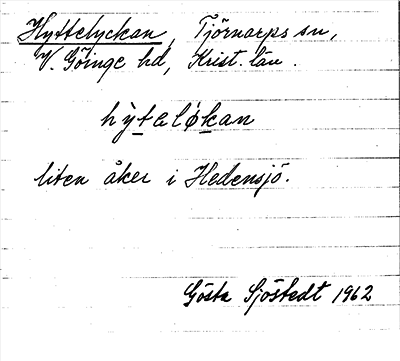 Hyttelyckan, Tjörnarps sn,
V. Göinge hd, Krist. län.
hỳteløkan
liten åker i Hedensjö.
Gösta Sjöstedt 1962